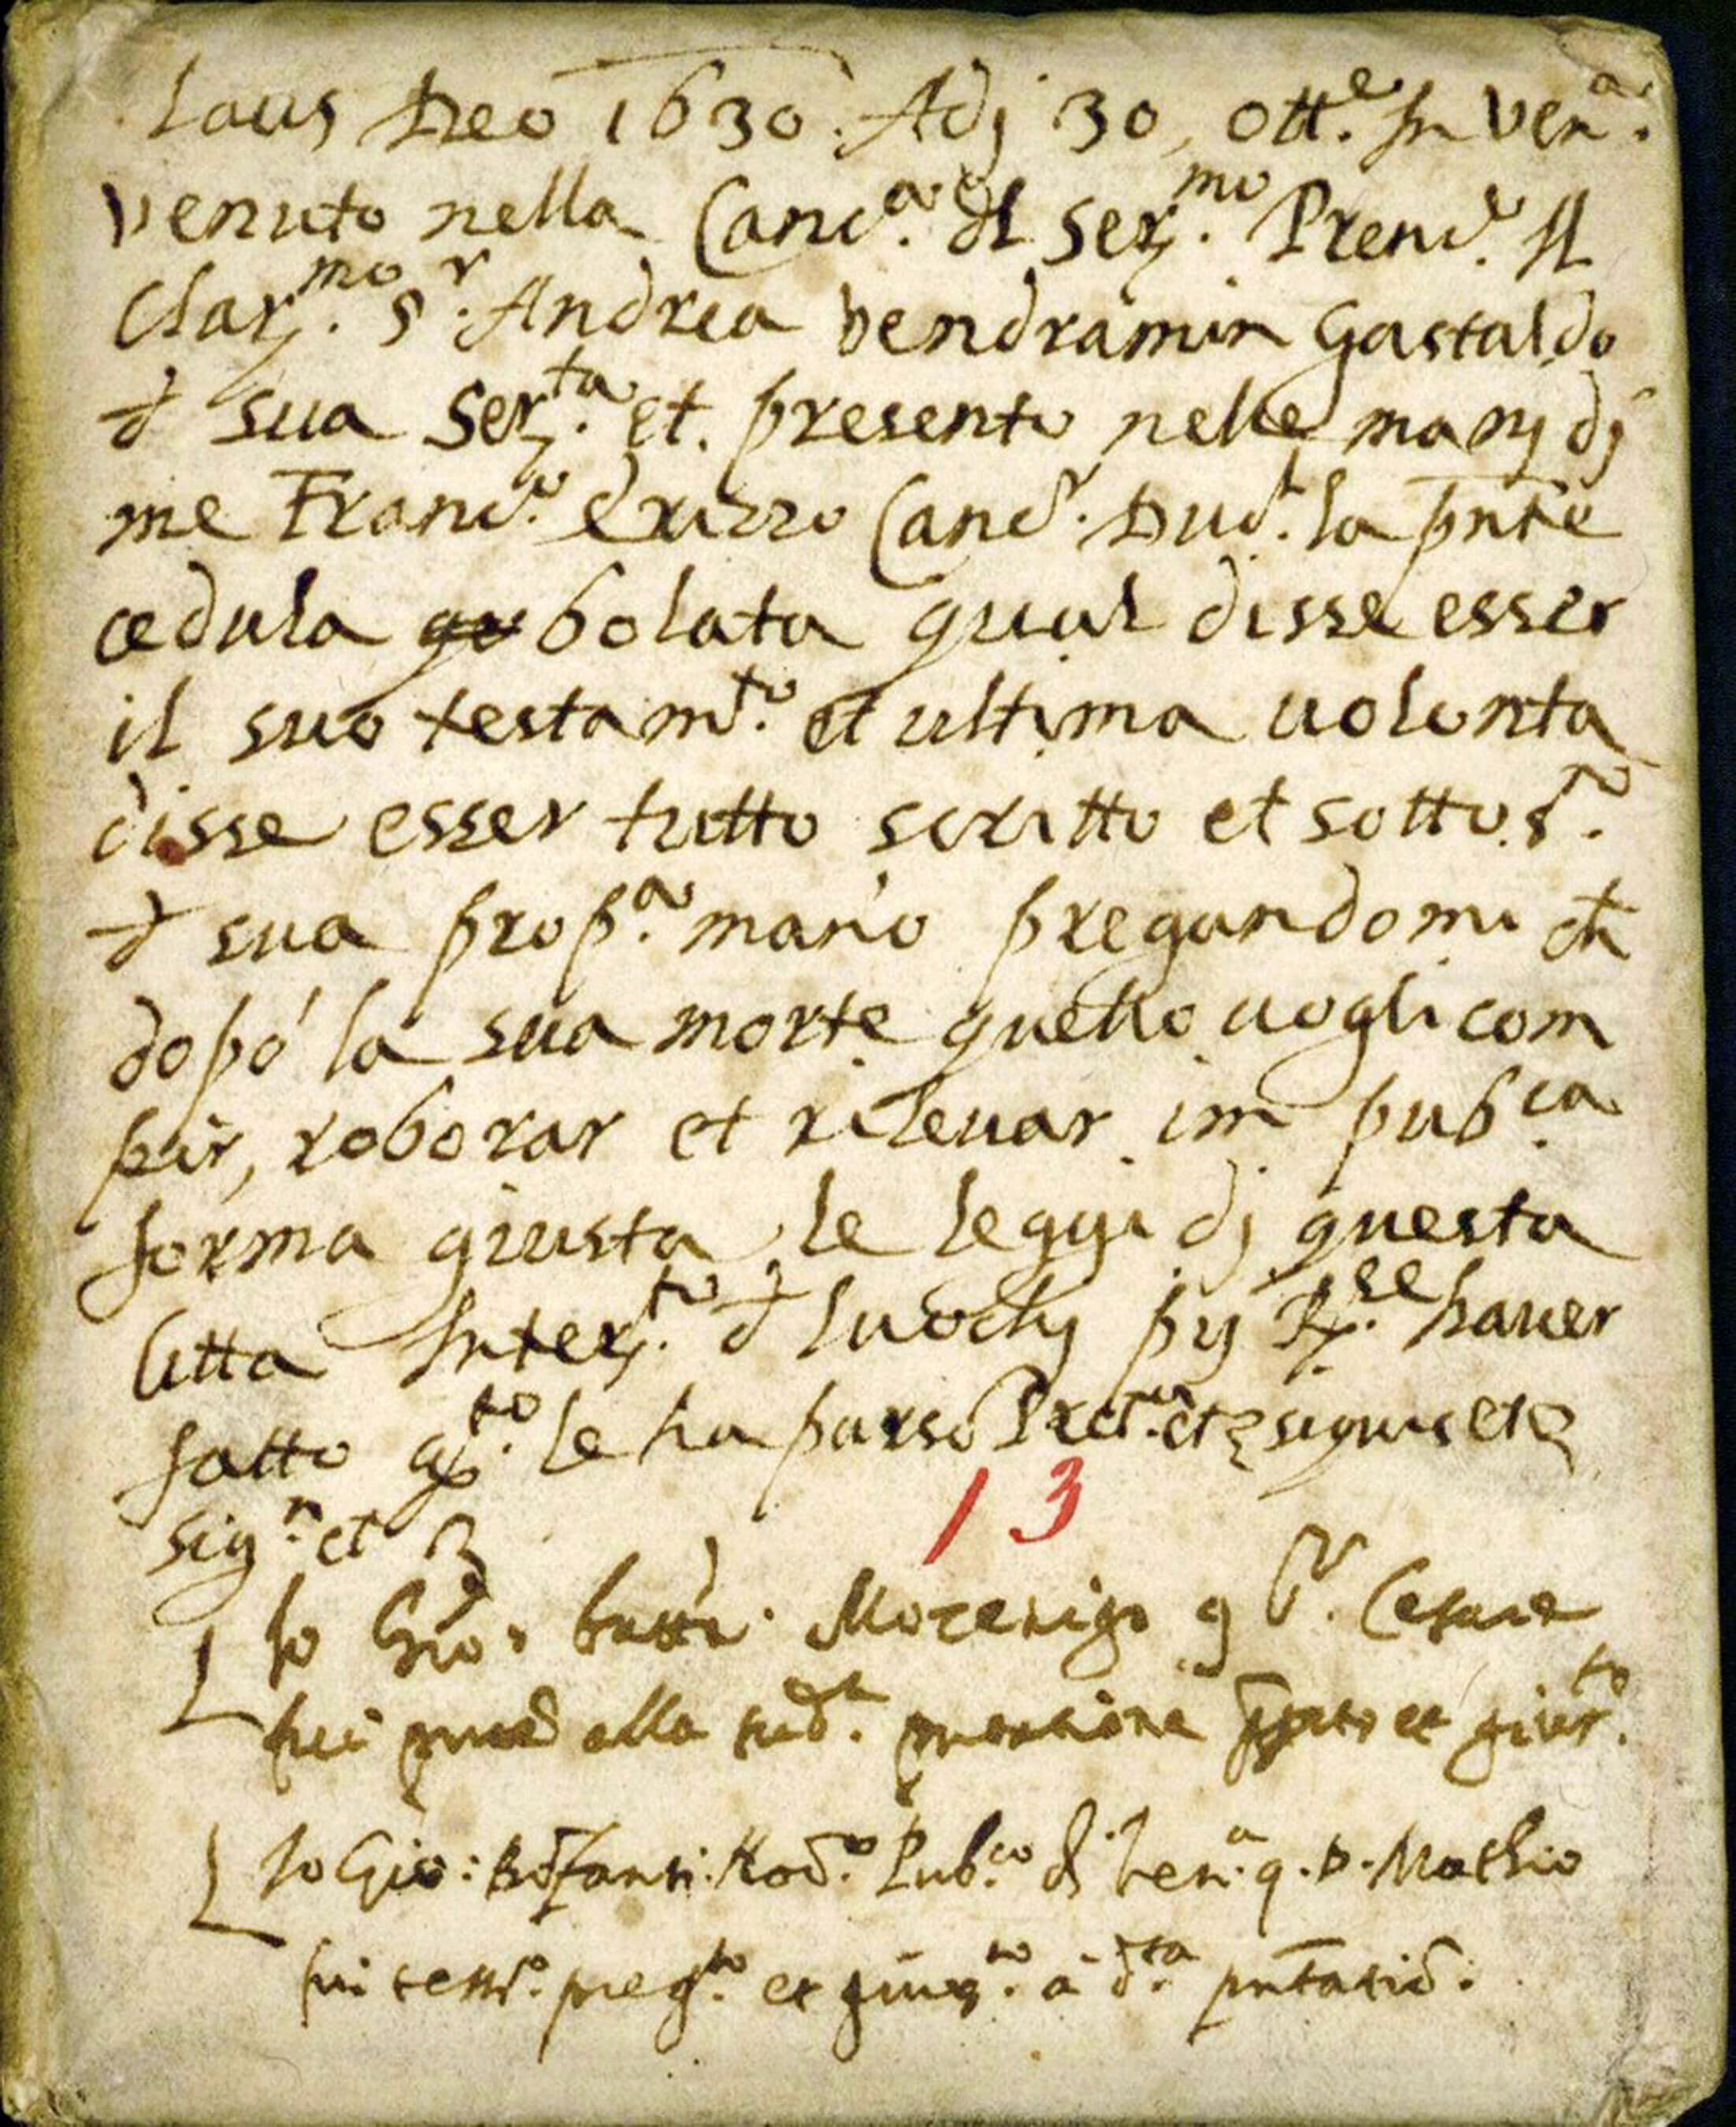 Laus Deo 1630. Adj 30, ott.e In Ven.a
venuto nella Canc.a dl Ser.mo Prenc.e Il
Clar.mo S.r Andrea Vendramin Gastaldo
d sua Ser.ta et. presento nelle manj dj
me Franc.o Erizzo Canc.r Duc.l la pnte
cedula bolata qual disse esser
il suo testam.to et ultima uolonta
disse esser tutto scritto et sotto s.to
d sua prop.a mano pregandomi ch
dopó la sua morte quello uogli com
pir, roborar et rileuar im pub.ca
forma giusta le leggi dj questa
Citta Inter.to d luochj pij R.se hauer
fatto q.to le ha parso Pret.a et signis et
sig.n et
13
Io Gio: batta. Mocenigo q S.r Cesare
fui alla sud.a et giur.to
Io Gio: Nod.o Pub.co d Ven.a q. D. Mathio
fui test.o preg.to et giur.to a d.ta pntatio.